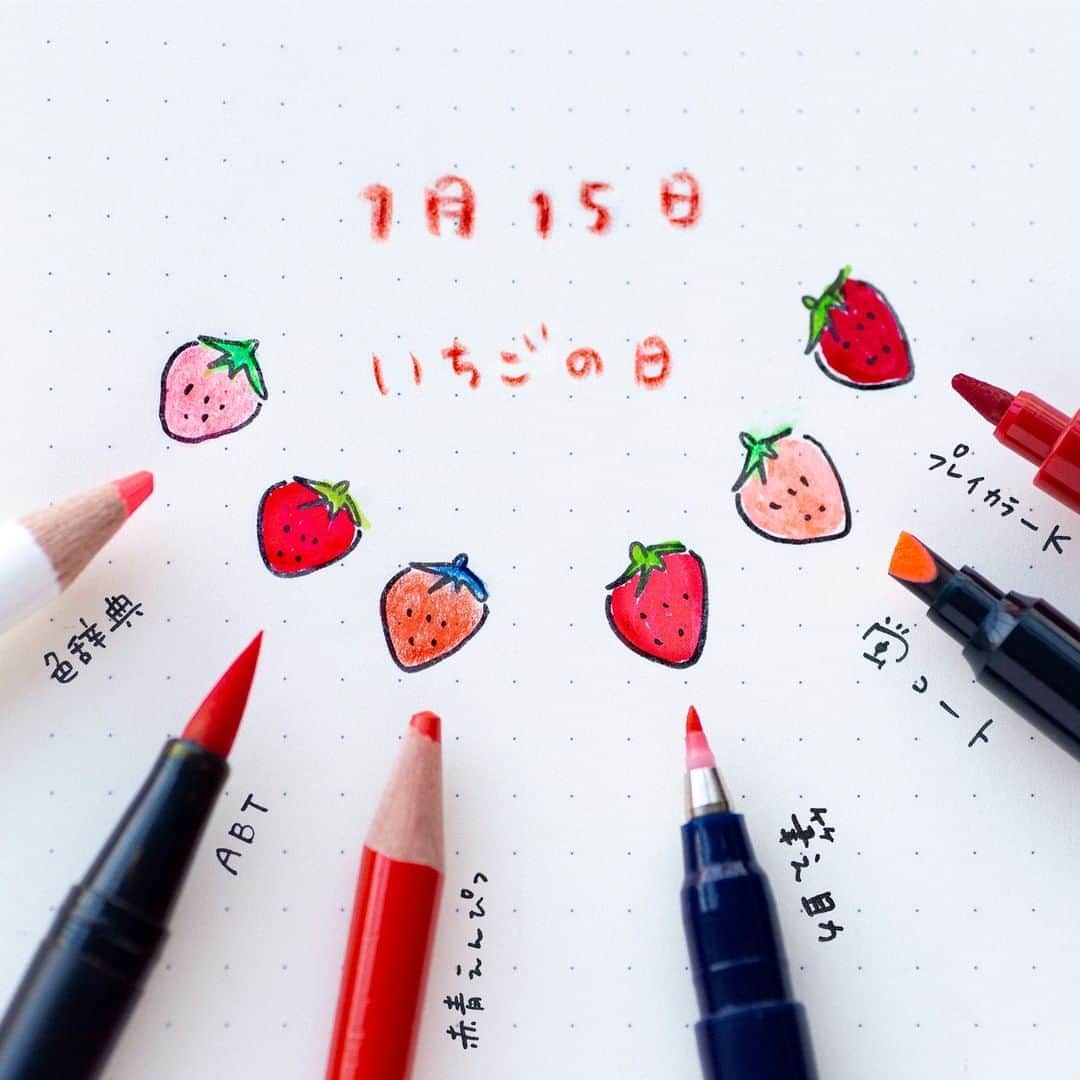 1月15日
いちごの日
色辞典
ABT
赤青えんぴつ
筆之助
蛍コート
プレイカラーK